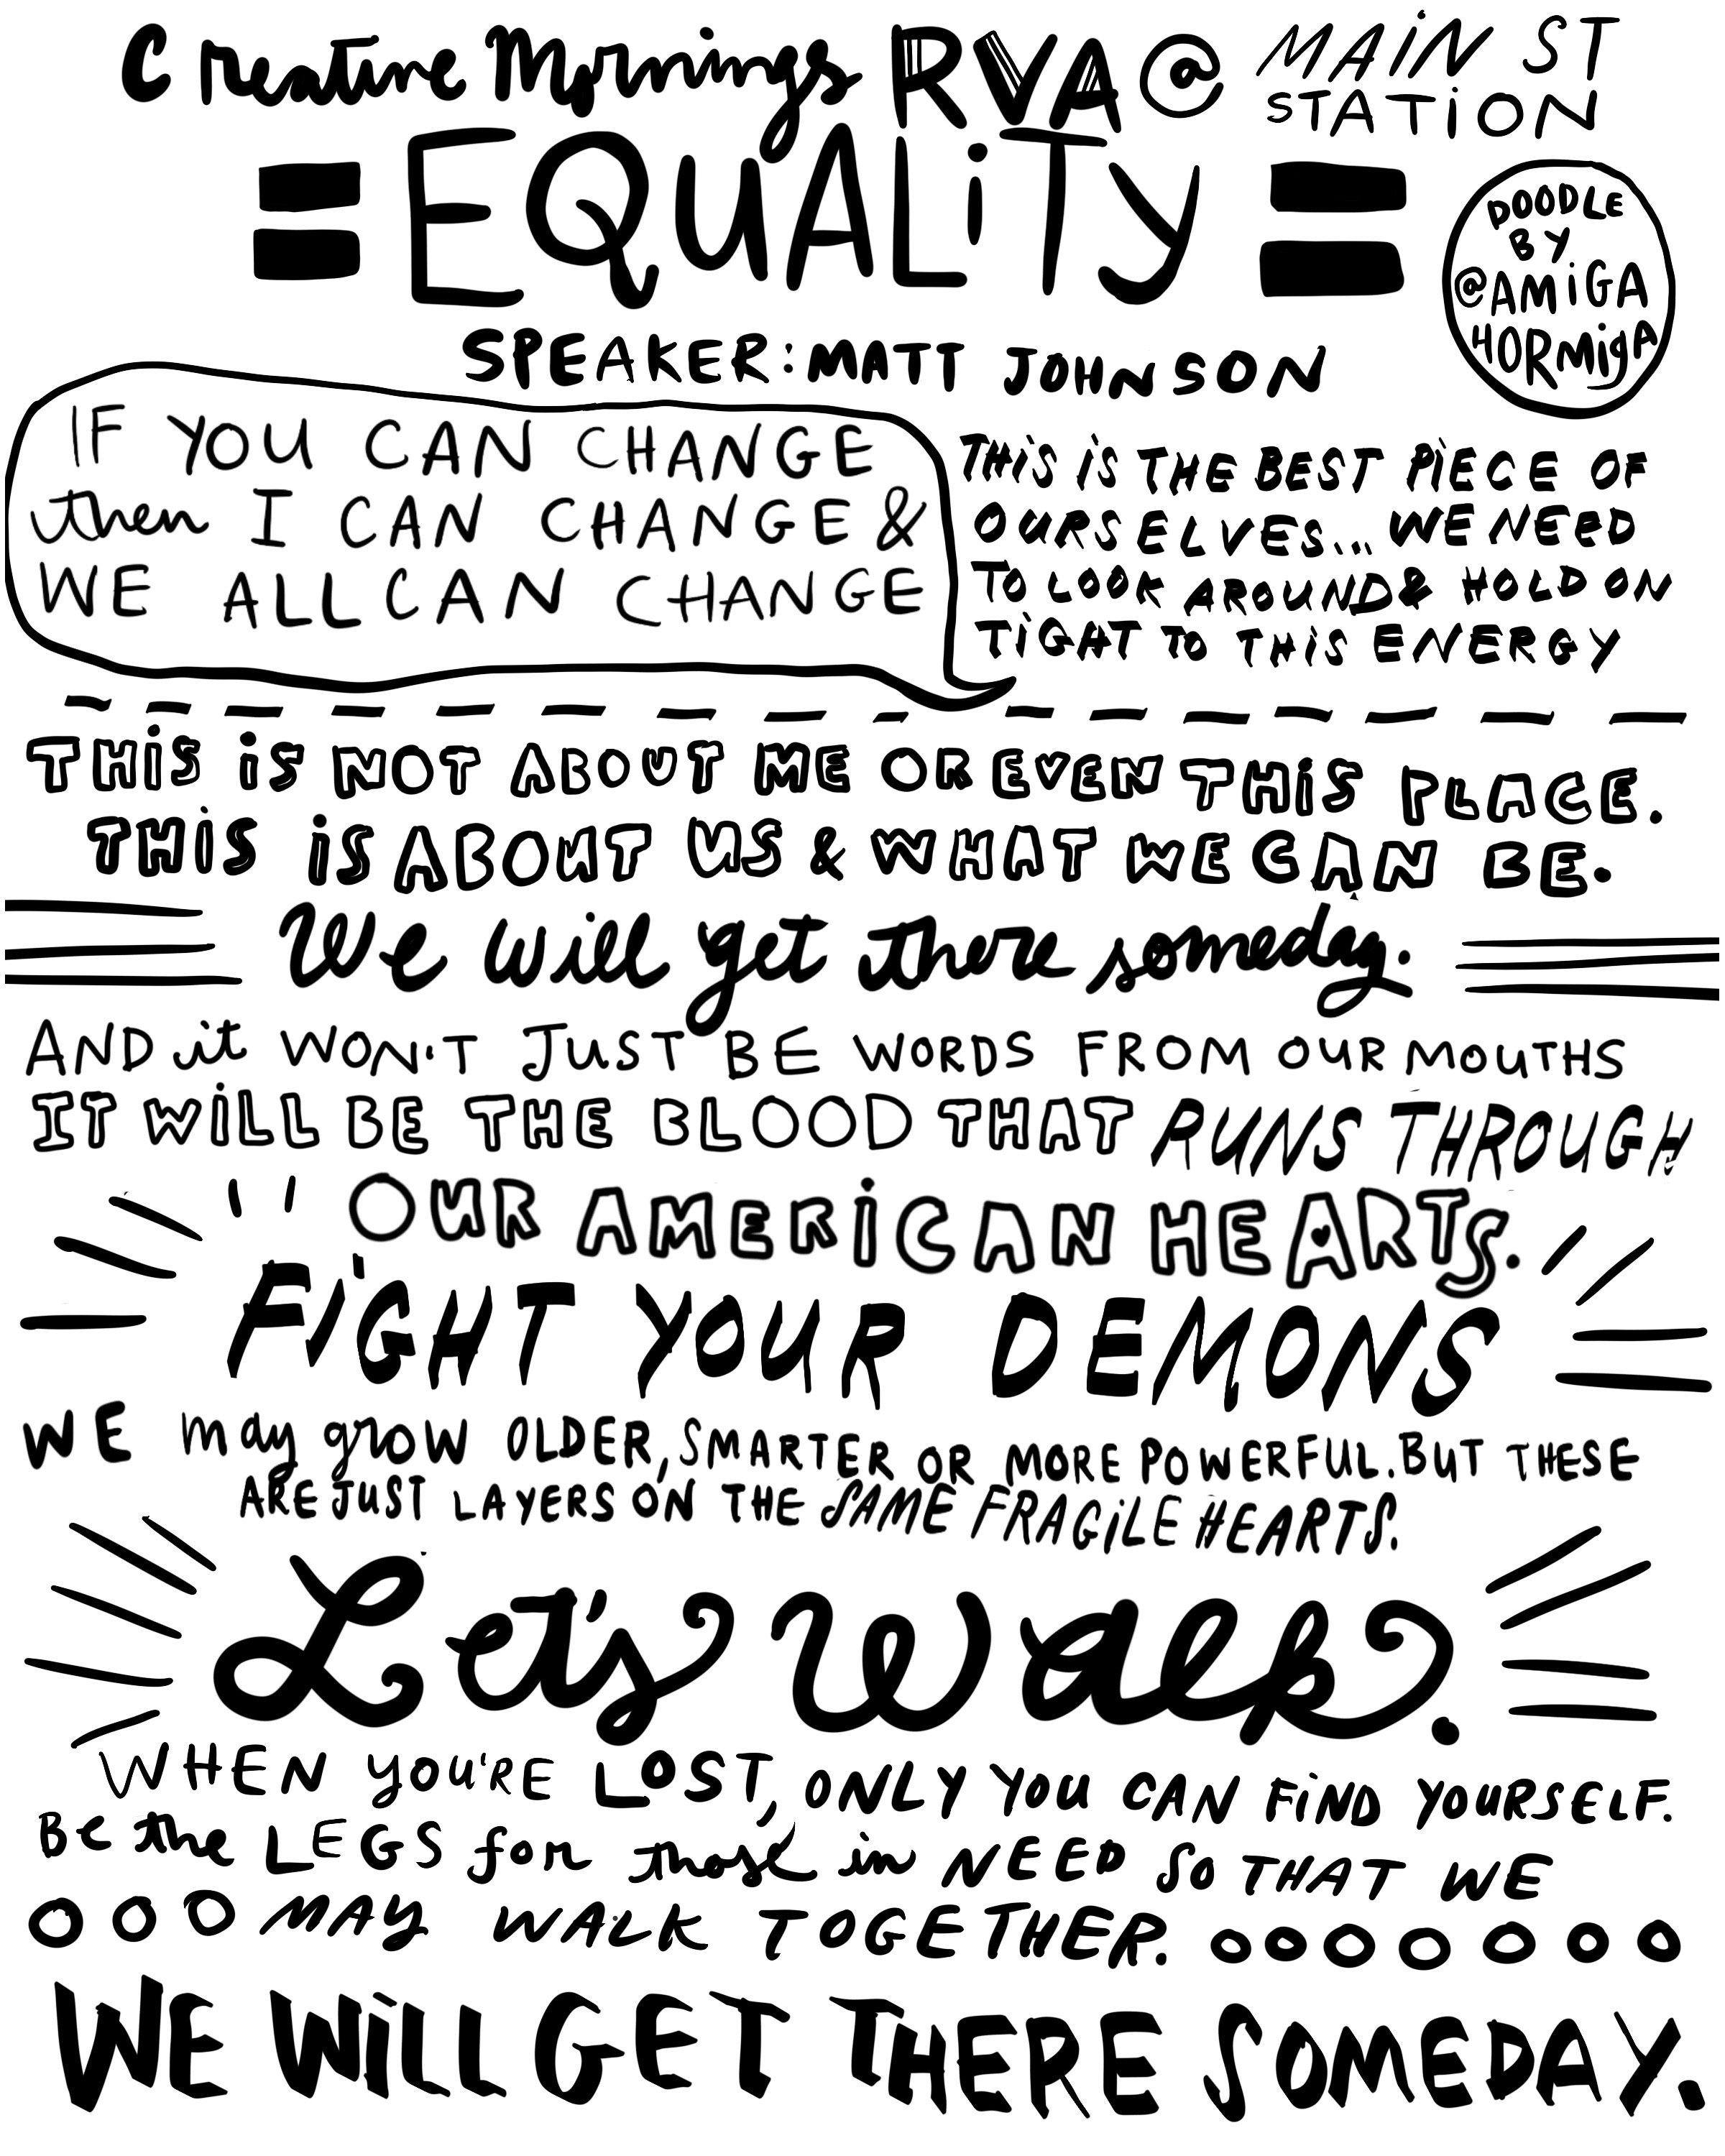 Creative Mornings RVA @ MAiN ST STATiON
= EQUALiTy =
DOODLE
BY
@AMiGA
HORMigA
SPEAKER: MATT JOHNSON
IF YOU CAN CHANGE
then I CAN CHANGE &
WE ALL CAN CHANGE
THiS iS THE BEST PiECE OF
OURSELVES... WE NEED
TO LOOK AROUND & HOLD ON
TiGHT TO THiS ENERGY
THiS iS NOT ABOUT ME OR EVEN THiS PLACE.
THiS iS ABOUT US & WHAT WE CAN BE.
We will get there someday.
AND it WON'T JUST BE WORDS FROM OUR MOUTHS
IT WiLL BE THE BLOOD THAT RUNS THROUGH
OUR AMERiCAN HEARTS.
FiGHT YOUR DEMONS
WE may grow OLDER, SMARTER OR MORE POWERFUL. BUT THESE
ARE JUST LAYERS ON THE SAME FRAGiLE HEARTS.
Let's Walk.
WHEN YOU'RE LOST, ONLY YOU CAN FiND YOURSELF.
Be the LEGS for those in NEED SO THAT WE
MAY WALK TOGETHER.
WE WiLL GET THERE SOMEDAY.